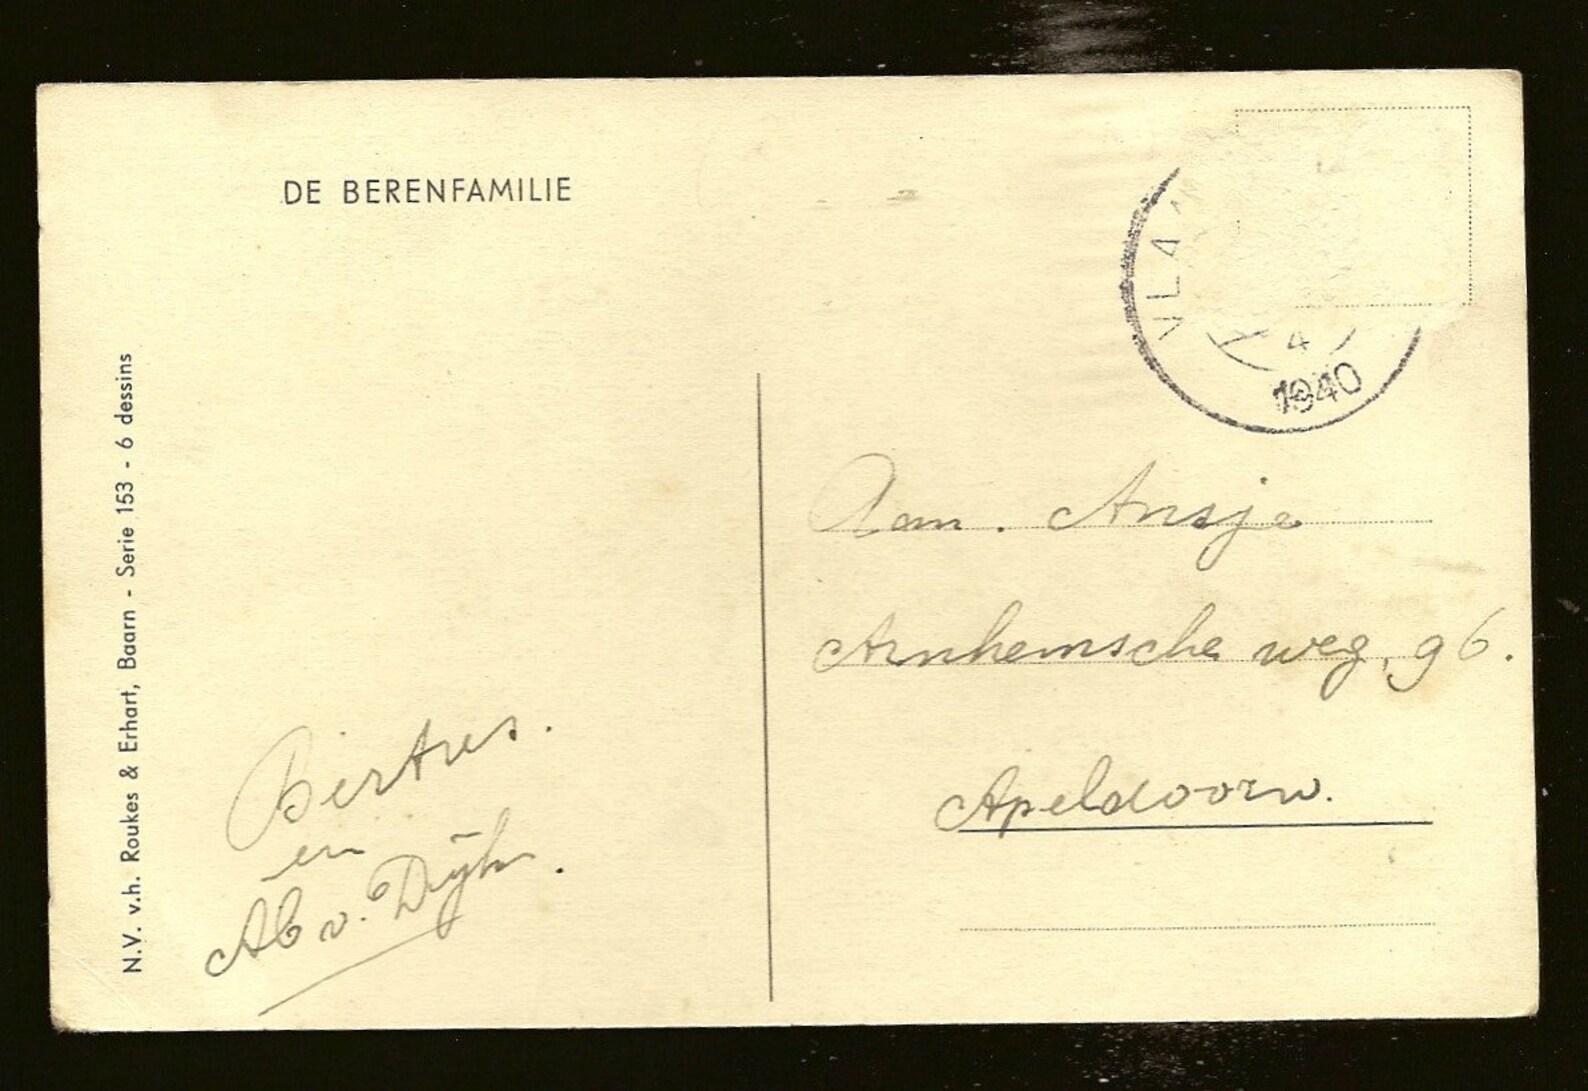 DE BERENFAMILIE
N.V. v.h. Roukes & Erhart, Baarn - Serie 153 - 6 dessins
VLA
4
1940
Aan. Ansje
Arnhemsche weg, 96.
Apeldoorn.
Bertus.
en
Ab v. Dijk.